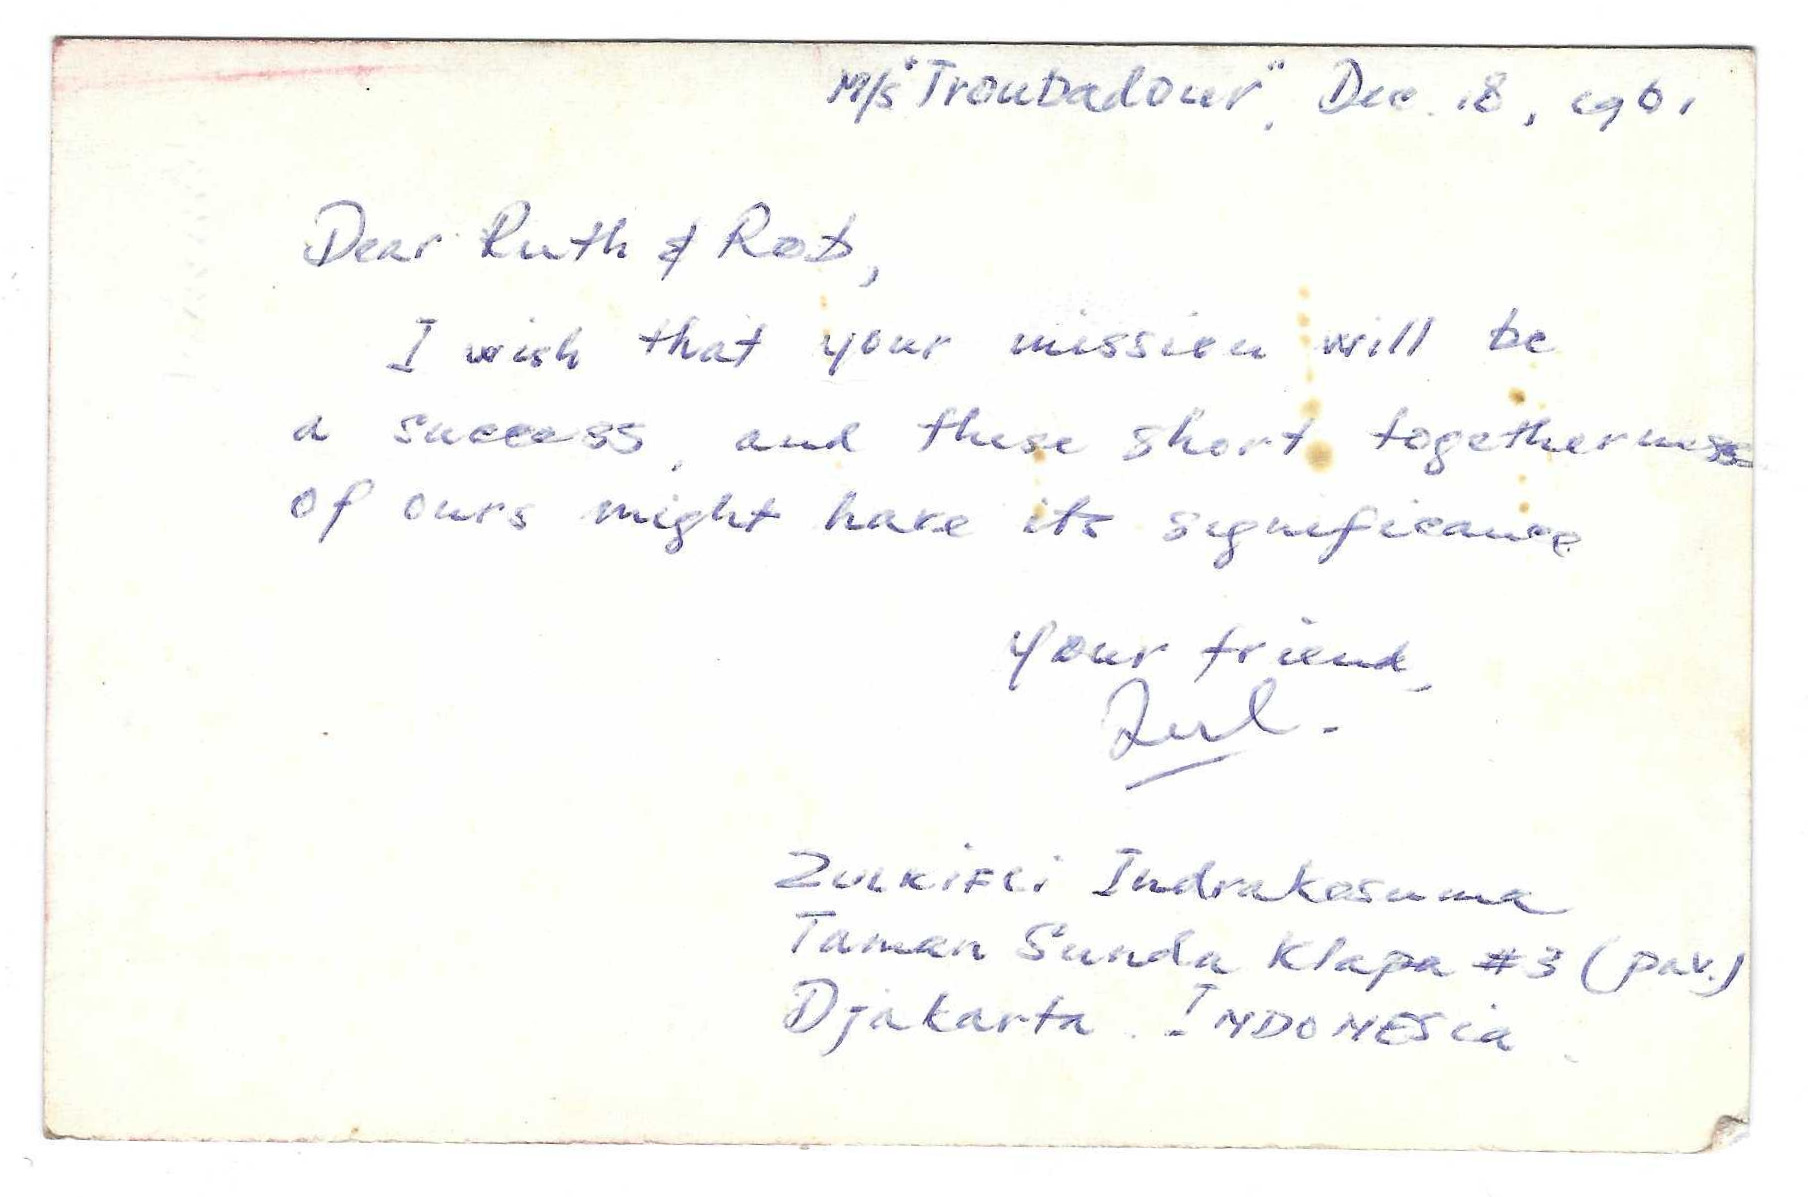 M/s "Troubadour", Dec. 18, 1961
Dear Ruth & Rob,
I wish that your mission will be
a success, and these short togetherness
of ours might have its significance
Your friend,
Zul.
Zulkifli Indrakesuma
Taman Sunda Klapa #3 (pav.)
Djakarta. INDONESia.